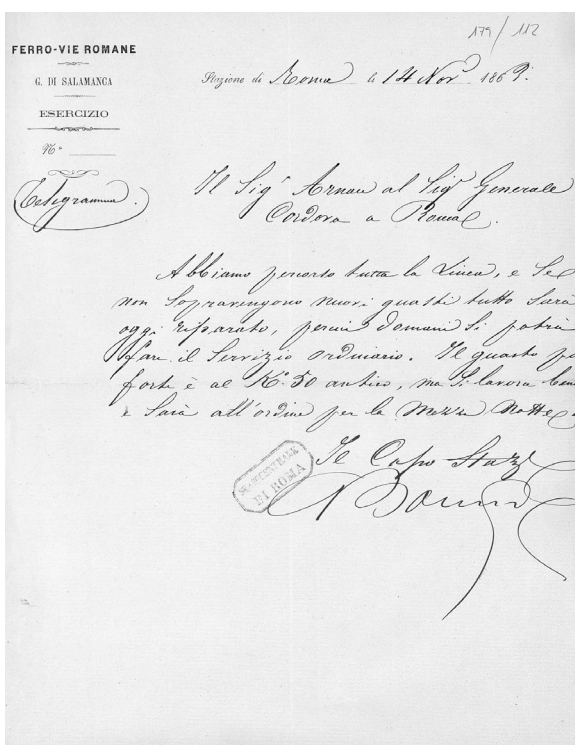 179/112
FERRO-VIE ROMANE
G. DI SALAMANCA
ESERCIZIO
N.º
Telegramma
Stazione di Roma li 14 Nov.e 1863.
Il Sig.r Arnau al Sig.r Generale
Cordova a Roma.
Abbiamo percorso tutta la Linea, e Se
non sopravengono nuovi guasti tutto sarà
oggi riparato, percui domani si potrà
fare il Servizio ordinario. Il guasto
forte è al K.º 50 antico, ma si lavora
e sarà all'ordine per la Mezza Notte
Il Capo Staz.e
STAZ. CENTRALE
DI ROMA